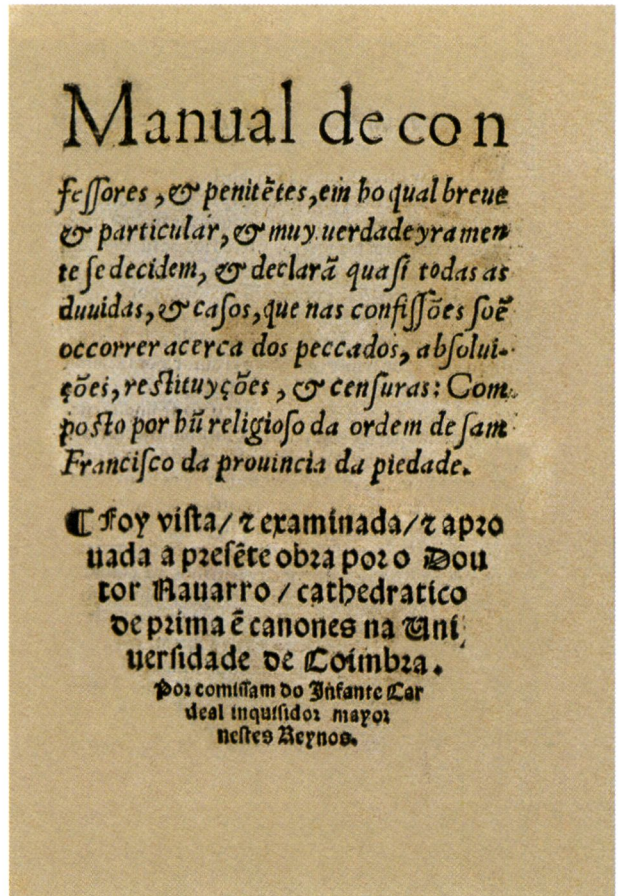 Manual de con
feſſores, & penitẽtes, em ho qual breue
& particular, & muy uerdadeyramen
te ſe decidem, & declarã quaſi todas as
duuidas, & caſos, que nas confiſſões ſoẽ
occorrer acerca dos peccados, abſolui-
ções, reſtituyções, & cenſuras: Com
poſto por hũ religioſo da ordem de ſam
Franciſco da prouincia da piedade.
¶ Foy viſta/ ⁊ examinada/ ⁊ apꝛo
uada a pꝛeſẽte obꝛa poꝛ o Dou
tor Nauarro / cathedratico
de pꝛima ẽ canones na Uni
uerſidade de Coimbꝛa.
Poꝛ comiſſam do Infante Car
deal inquiſidoꝛ mayoꝛ
neſtes Reynos.